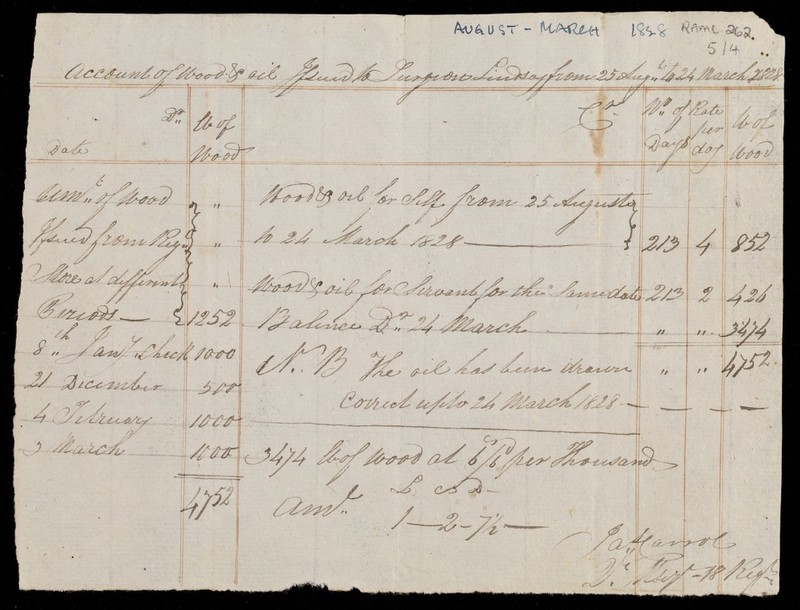 AUGUST - MARCH 1828 RAMC 262.
5/4
Account of Wood & oil Issued to Surgeon Lindsay from 25 Augt to 24 March 1828
Dr Cr
Date
lb of Wood
No of Days
Rate per day
lb of Wood
Amt of Wood "
Issued from Regt "
Store at different "
Periods — 1252
8th Jany Check 1000
21 December 500
4 February 1000
3 March 1000
4752
Wood & oil for Self from 25 Augusta
to 24 March 1828 — 213 4 852
Wood & oil for Servant for the Same date 213 2 426
Balince Dr 24 March " " 3474
N.B The oil has been drawn " " 4752
Corect upto 24 March 1828 — — — —
3474 lb of wood at 6/6 per Thousand
£ S D
Amt 1-2-7½
Jas Carrol
Qr Sergt - 18 Regt